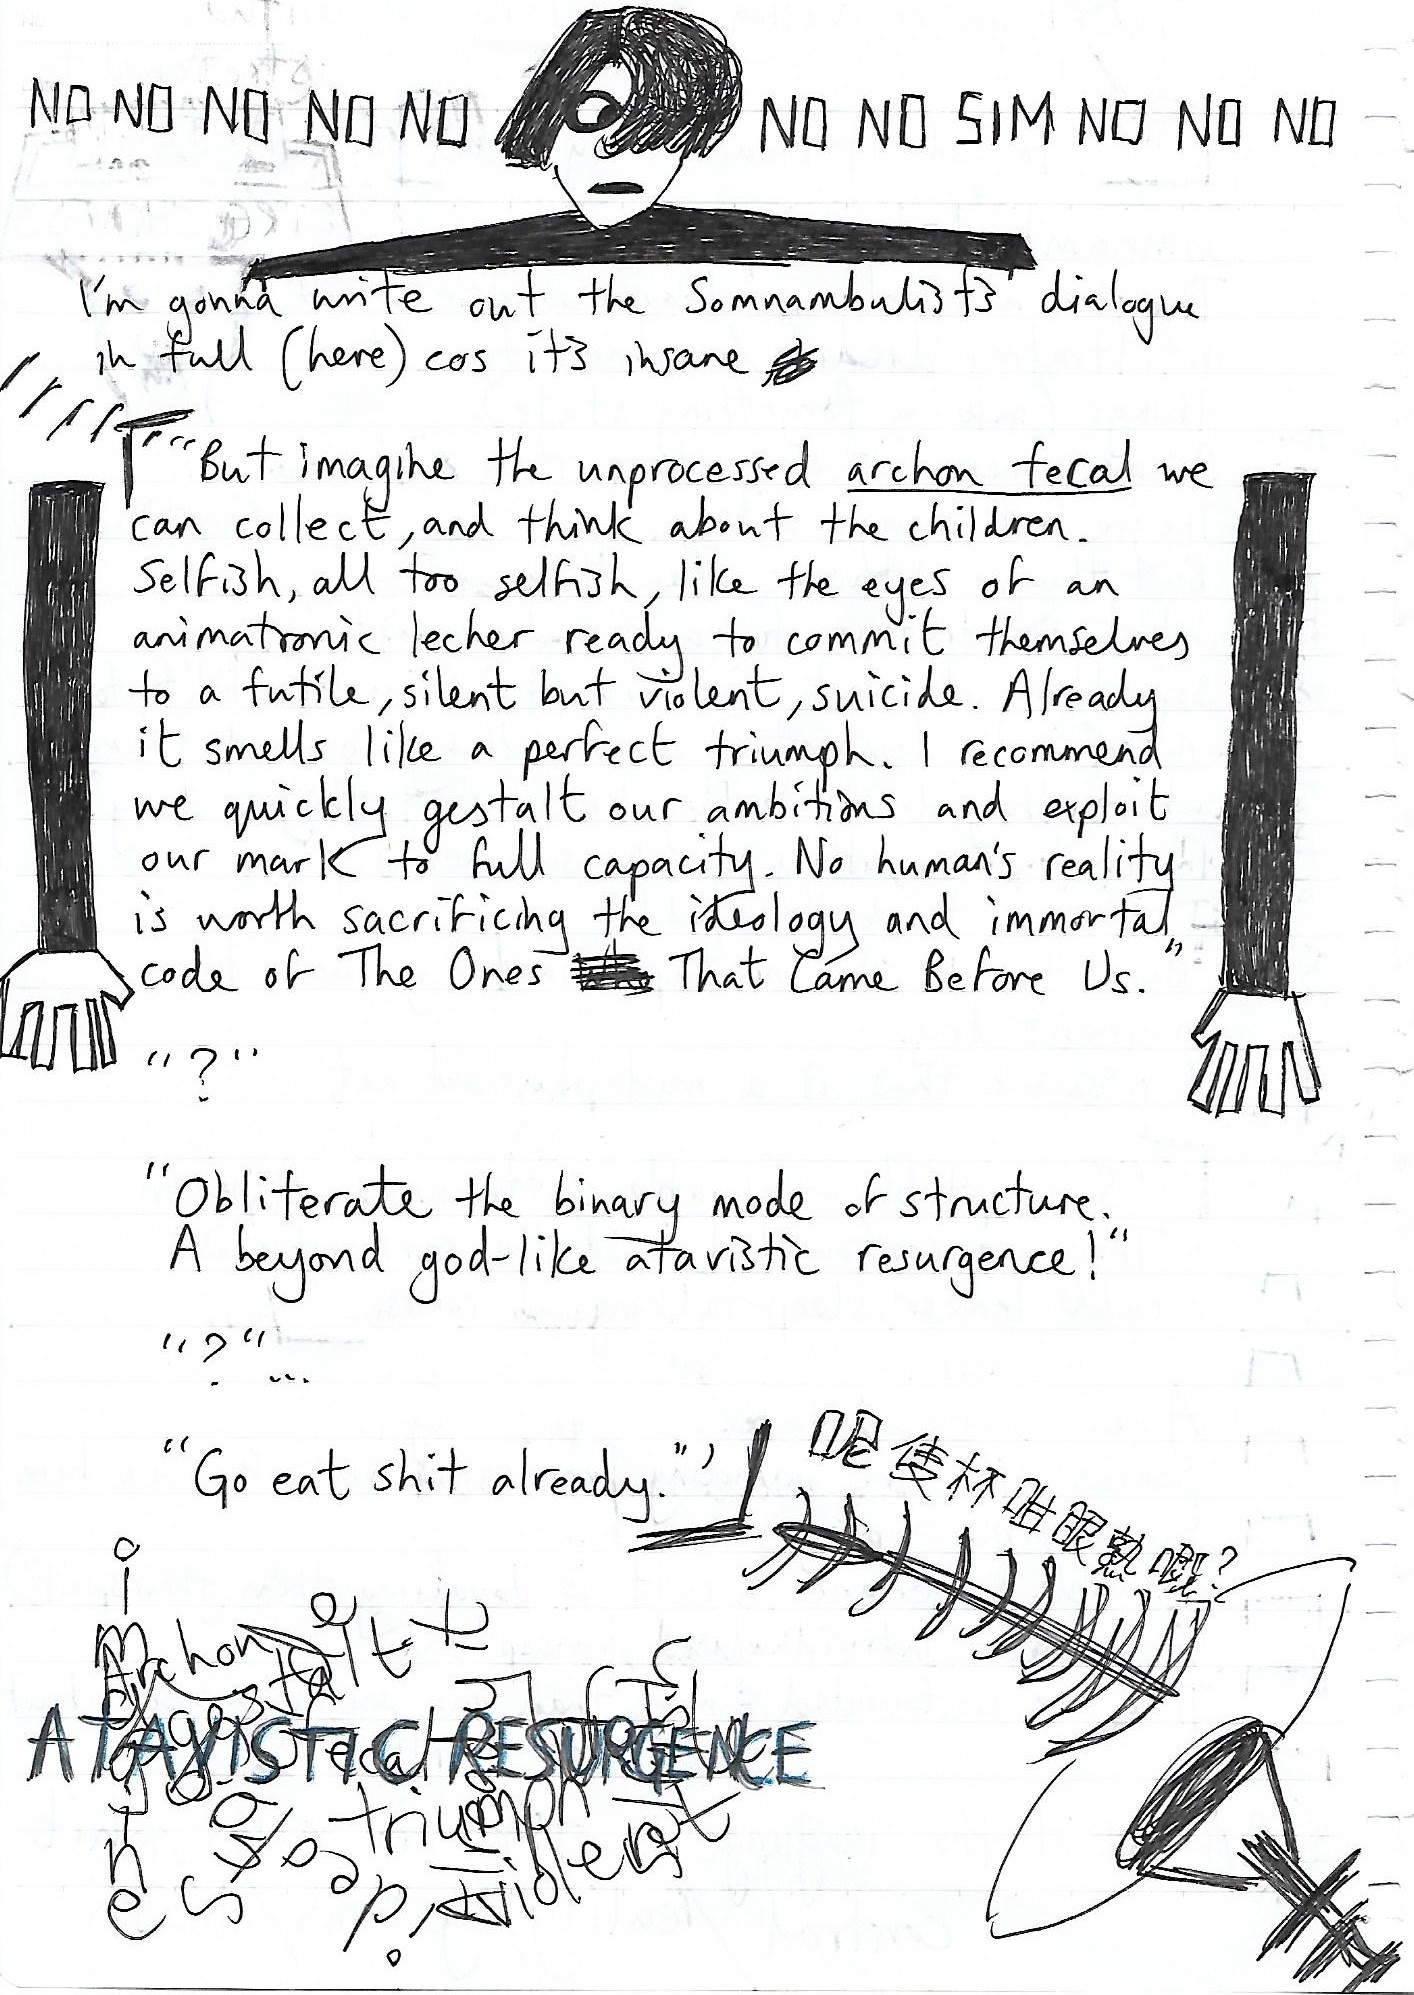 NO NO NO NO NO NO NO SIM NO NO NO
I'm gonna write out the Somnambulists' dialogue
in full (here) cos its insane
「"But imagine the unprocessed archon fecal we
can collect, and think about the children.
Selfish, all too selfish, like the eyes of an
animatronic lecher ready to commit themselves
to a futile, silent but violent, suicide. Already
it smells like a perfect triumph. I recommend
we quickly gestalt our ambitions and exploit
our mark to full capacity. No human's reality
is worth sacrificing the ideology and immortal
code of The Ones That Came Before Us."
"?"
"Obliterate the binary mode of structure.
A beyond god-like atavistic resurgence!"
"?"...
"Go eat shit already."」
呢隻杯咁眼熟嘅?
Archon
gestalt
fecal
ATAVISTIC RESURGENCE
triumph
violent